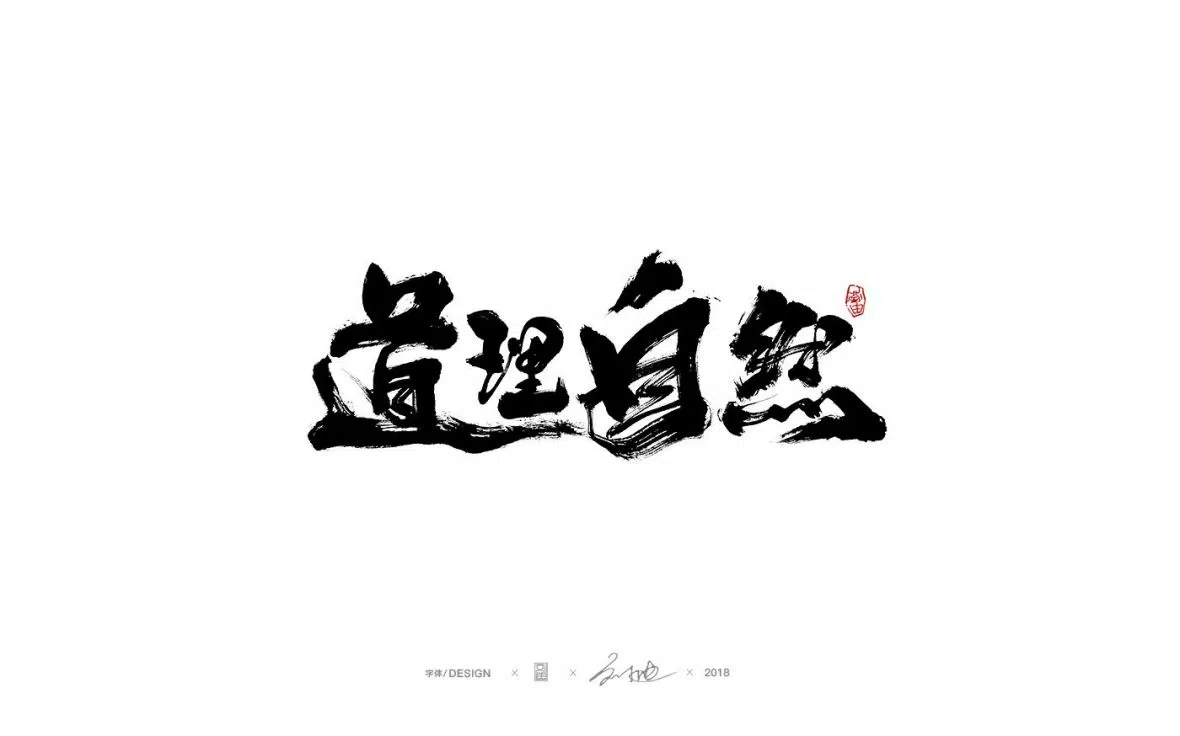 道理自然
字体/DESIGN × × × 2018